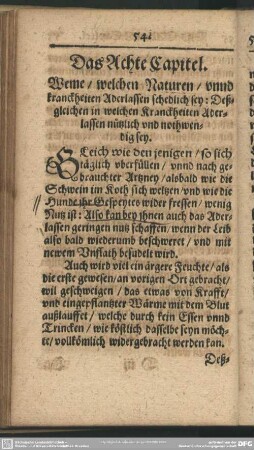 54.
Das Achte Capitel.
Weme / welchen Naturen / vnnd
kranckheiten Aderlassen schedlich sey: Deß-
gleichen in welchen Kranckheiten Ader-
lassen nützlich vnd nothwen-
dig sey.
Gleich wie den jenigen / so sich
täglich vberfüllen / vnnd nach ge-
brauchter Artzney / alsbald wie die
Schwein im Koth sich weltzen / vnd wie die
Hunde ihr Gespeytes wider fressen / wenig
Nutz ist: Also kan bey ihnen auch das Ader-
lassen geringen nutz schaffen / wenn der Leib
also bald wiederumb beschweret / vnd mit
newem Vnflath besudelt wird.
Auch wird viel ein ärgere Feuchte / als
die erste gewesen / an vorigen Ort gebracht /
wil geschweigen / das etwas von Krafft /
vnd eingepflantzter Wärme mit dem Blut
außlauffet / welche durch kein Essen vnnd
Trincken / wie köstlich dasselbe seyn möch-
te / vollkömlich widergebracht werden kan.
Deß-